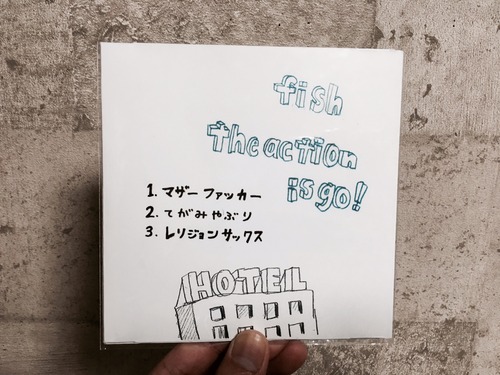 fish
the action
is go!!
1. マザーファッカー
2. てがみやぶり
3. レリジョンサックス
HOTEL